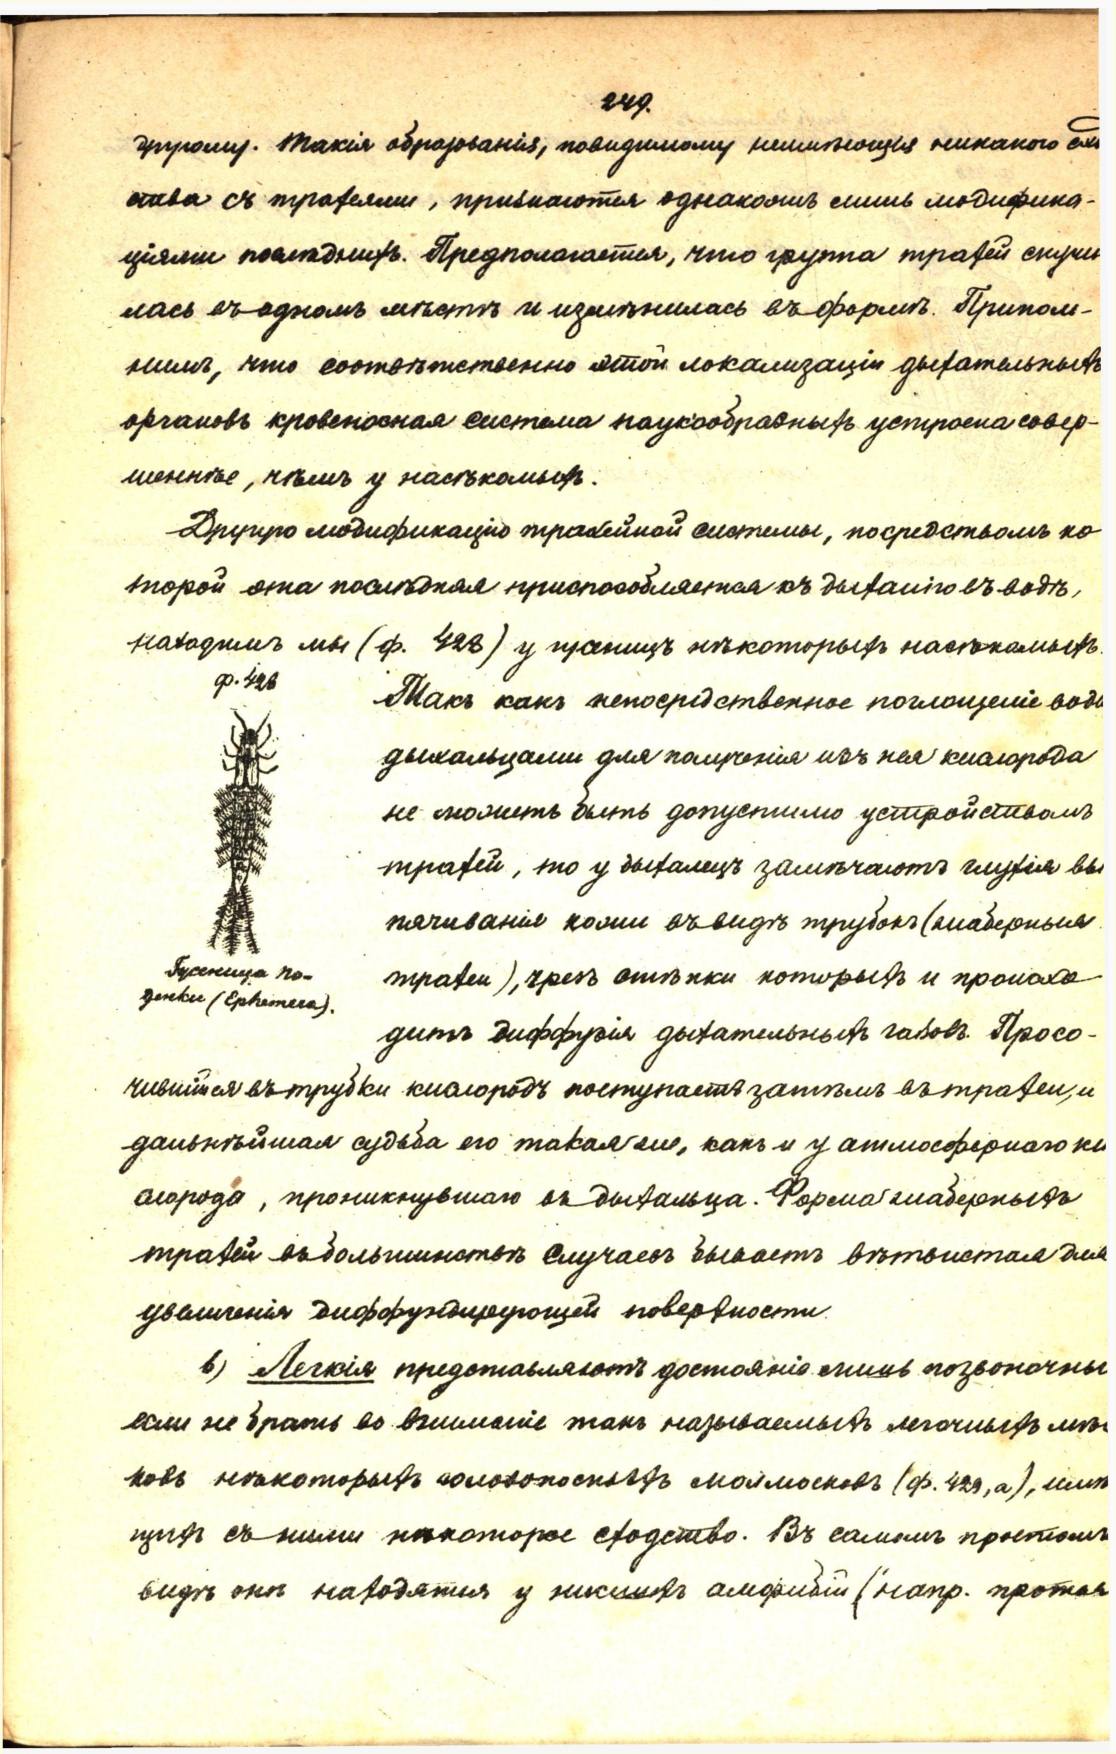 249.
другому. Такія образованія, повидимому неимѣющія никакого
ства съ трахеями, признаются однакожъ лишь модифика-
ціями послѣднихъ. Предполагается, что группа трахей скучи
лась въ одномъ мѣстѣ и измѣнилась въ формѣ. Припом-
нимъ, что соотвѣтственно этой локализаціи дыхательныхъ
органовъ кровеносная система паукообразныхъ устроена совер-
шеннѣе, чѣмъ у насѣкомыхъ.
Другую модификацію трахейной системы, посредствомъ ко
торой эта послѣдняя приспособляется къ дыханію въ водѣ,
находимъ мы (ф. 428) у гусеницъ нѣкоторыхъ насѣкомыхъ.
ф. 428
Гусеница по-
денки (Ephemera).
Такъ какъ непосредственное поглощеніе воды
дыхальцами для полученія изъ нея кислорода
не можетъ быть допустимо устройствомъ
трахей, то у дыхалецъ замѣчаютъ глухія вы
пячиванія кожи въ видѣ трубокъ (жаберныя
трахеи), чрезъ стѣнки которыхъ и происхо
дитъ диффузія дыхательныхъ газовъ. Просо-
чившійся въ трубки кислородъ поступаетъ затѣмъ въ трахеи, и
дальнѣйшая судьба его такая же, какъ и у атмосфернаго ки
слорода, проникнувшаго въ дыхальца. Форма жаберныхъ
трахей въ большинствѣ случаевъ бываетъ вѣтвистая для
увеличенія диффундирующей поверхности.
b) Легкія представляютъ достояніе лишь позвоночны
если не брать во вниманіе такъ называемыхъ легочныхъ мѣш
ковъ нѣкоторыхъ моллюсковъ (ф. 429, а), имѣ
щихъ съ ними нѣкоторое сходство. Въ самомъ простомъ
видѣ они находятся у низшихъ амфибій (напр. протея